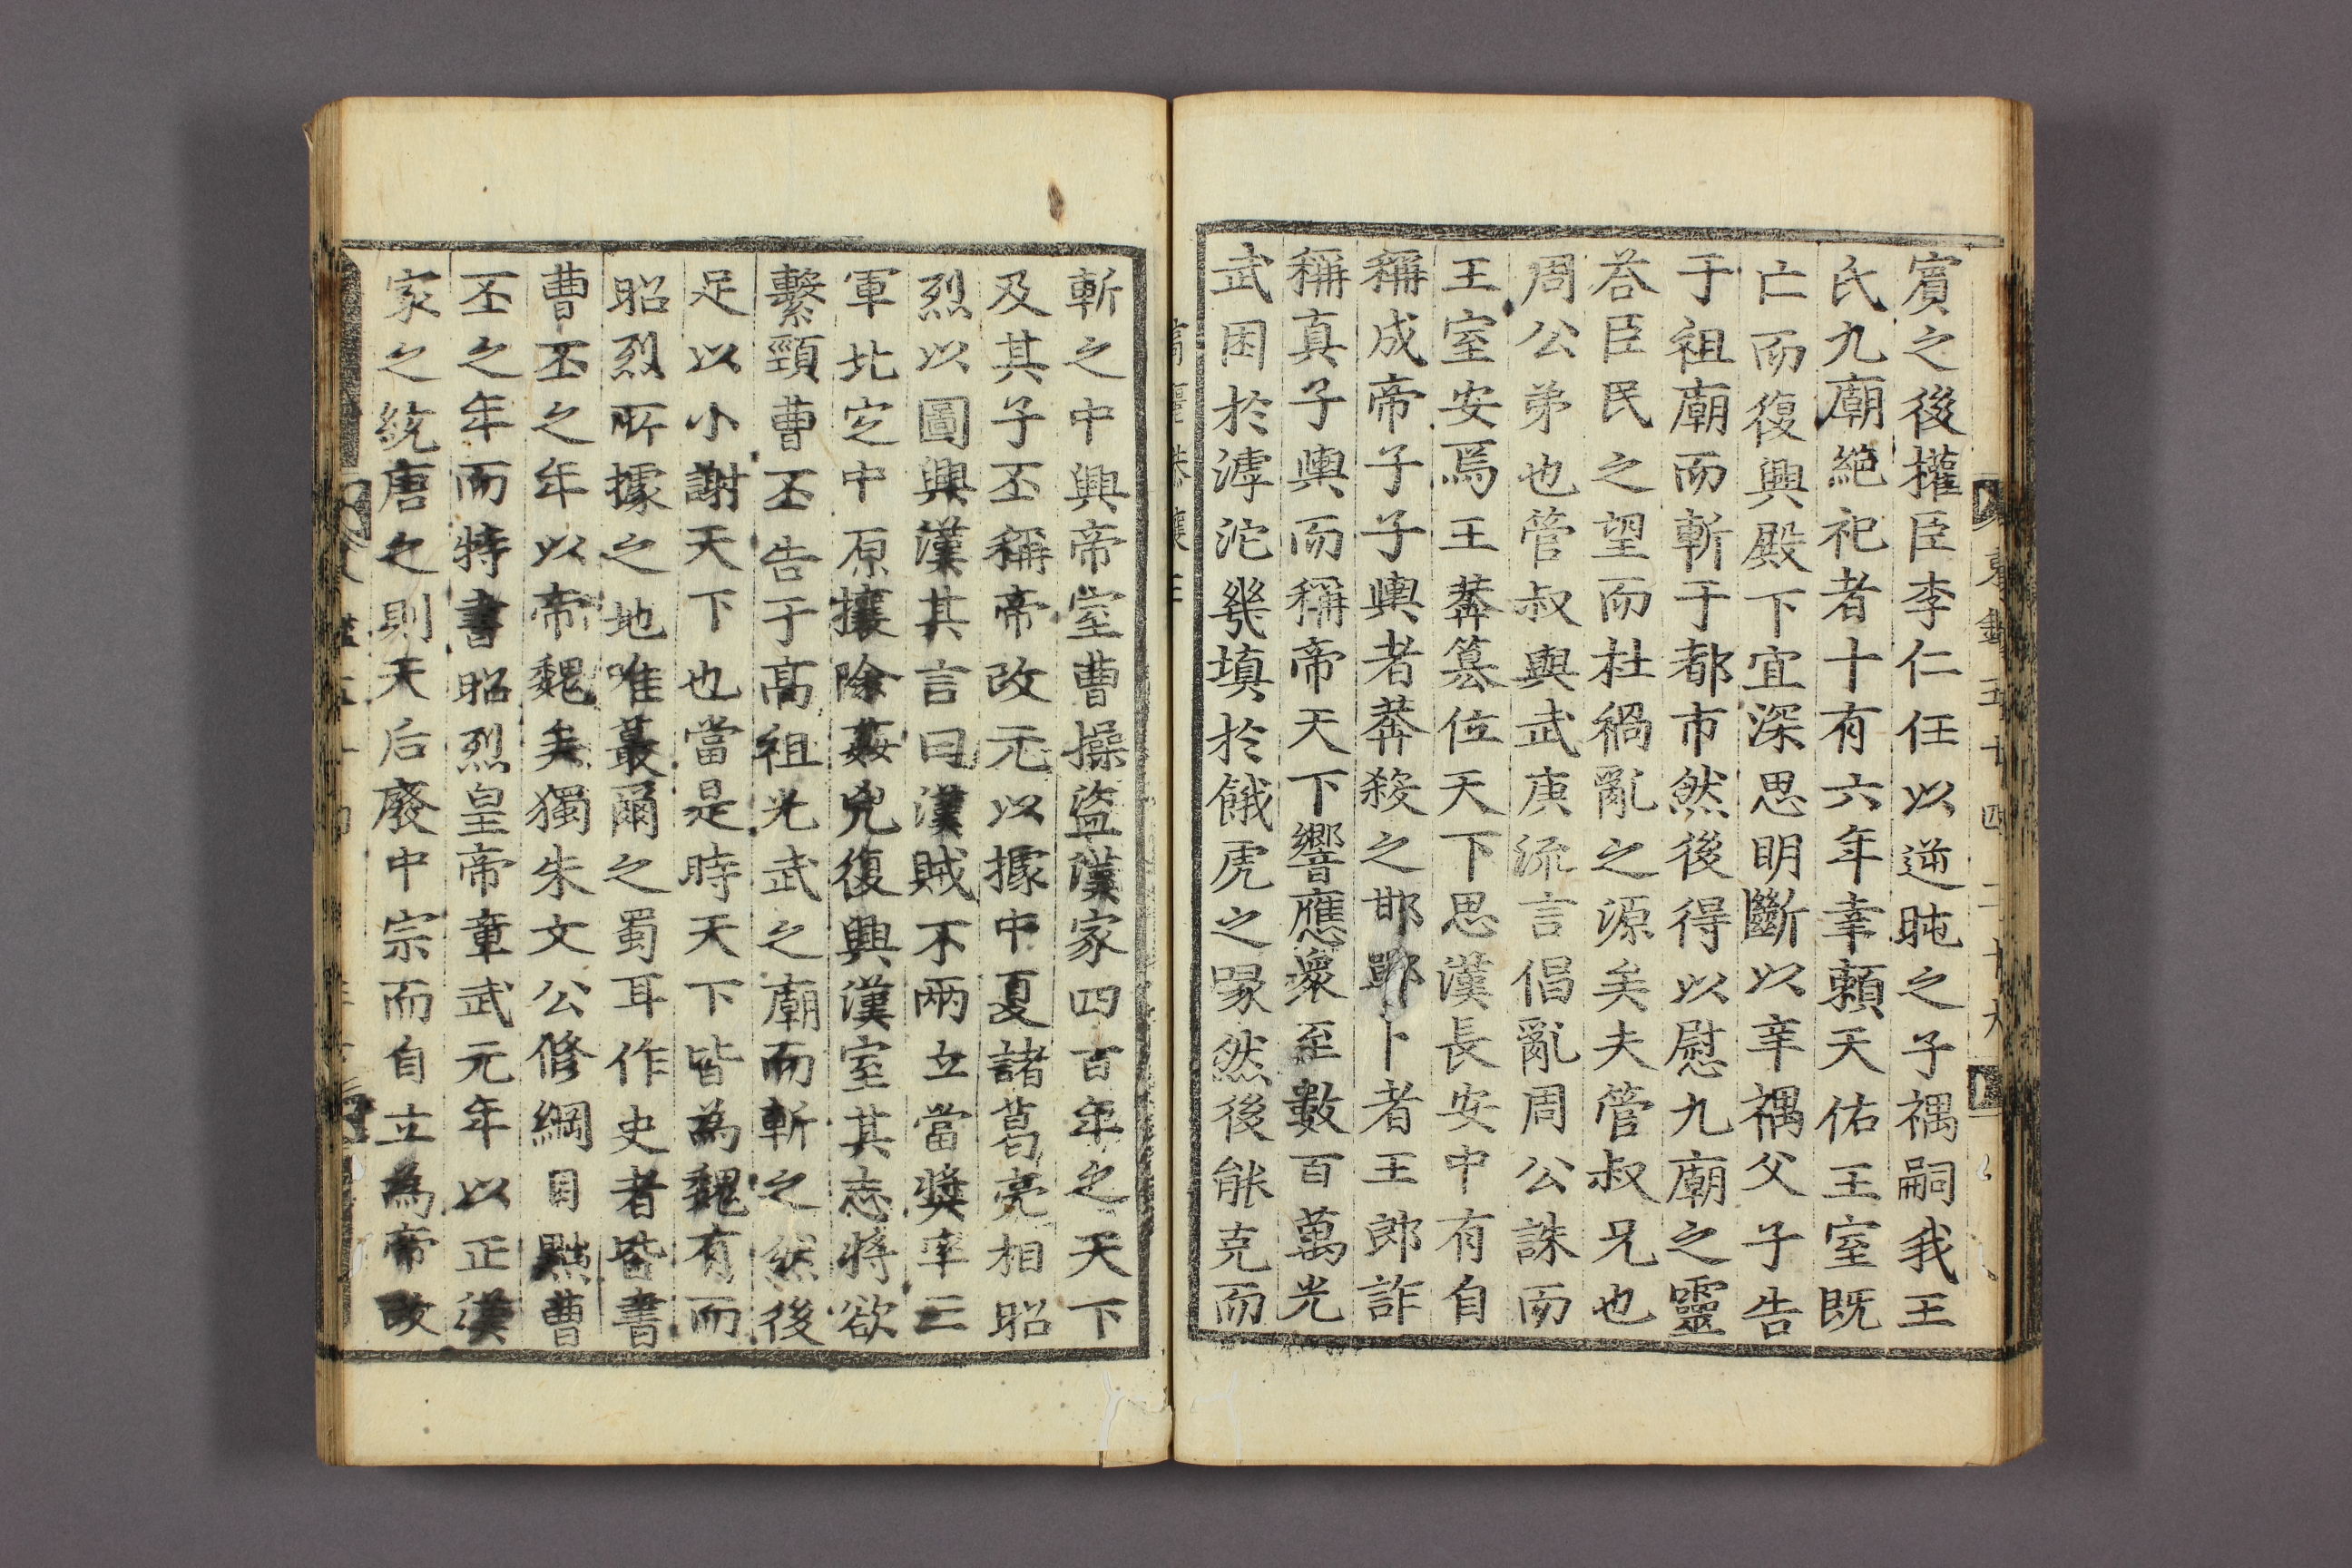 賓之後權臣李仁任以逆旽之子禑嗣我王
氏九廟絕祀者十有六年幸賴天佑王室旣
亡而復興殿下宜深思明斷以辛禑父子告
于祖廟而斬于都市然後得以慰九廟之靈
荅臣民之望而杜禍亂之源矣夫管叔兄也
周公弟也管叔與武庚流言倡亂周公誅而
王室安焉王莽簒位天下思漢長安中有自
稱成帝子子輿者莽殺之邯鄲卜者王郎詐
稱真子輿而稱帝天下響應衆至數百萬光
武困於滹沱幾塡於餓虎之喙然後能克而
東鑑五十四 二十九
斬之中興帝室曹操盜漢家四百年之天下
及其子丕稱帝改元以據中夏諸葛亮相昭
烈以圖興漢其言曰漢賊不兩立當奬率三
軍北定中原攘除姦兇復興漢室其志將欲
繫頸曹丕告于高祖光武之廟而斬之然後
足以小謝天下也當是時天下皆為魏有而
昭烈所據之地唯蕞爾之蜀耳作史者皆書
曹丕之年以帝魏矣獨朱文公修綱目黜曹
丕之年而特書昭烈皇帝章武元年以正漢
家之統唐之則天后廢中宗而自立為帝改